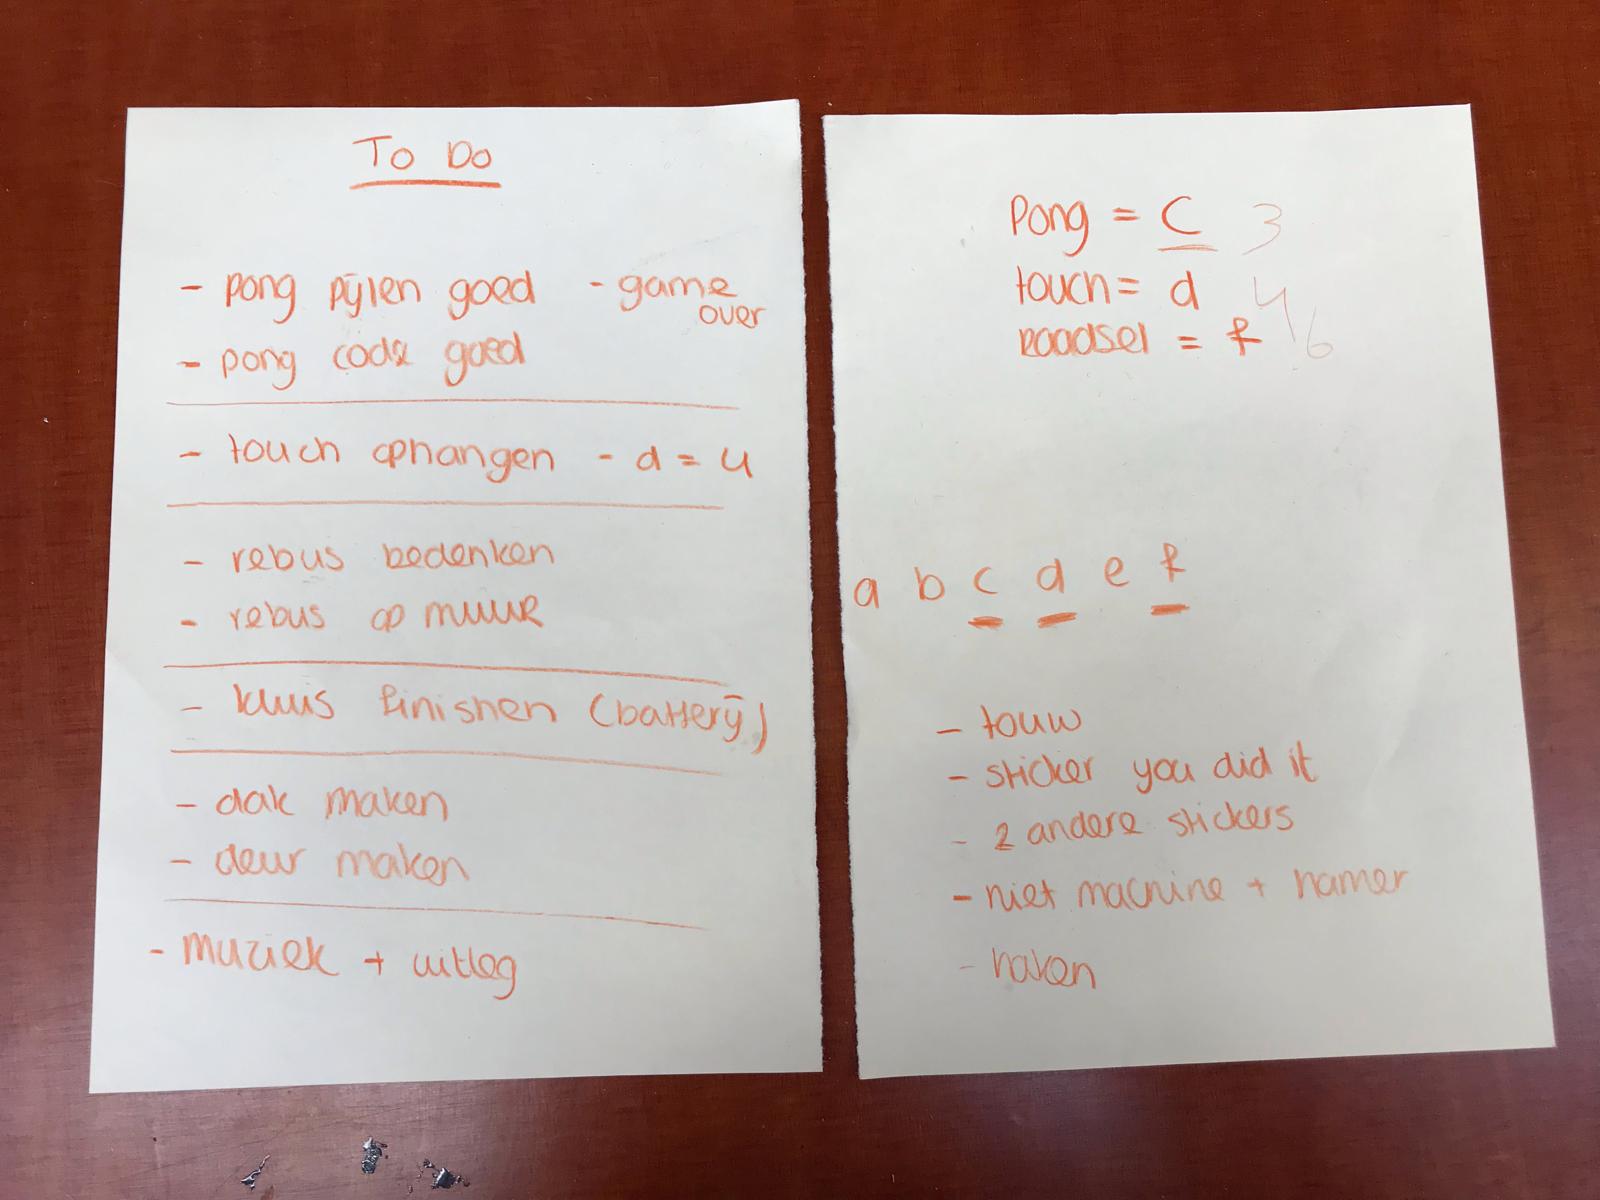 To Do
- pong pijlen goed - game
over
- pong code goed
- touch ophangen - d = 4
- rebus bedenken
- rebus op muur
- kluis finishen (batterij)
- dak maken
- deur maken
- muziek + uitleg
Pong = C 3
touch = d 4
raadsel = f 6
a b c d e f
- touw
- sticker you did it
- 2 andere stickers
- niet machine + hamer
- haken